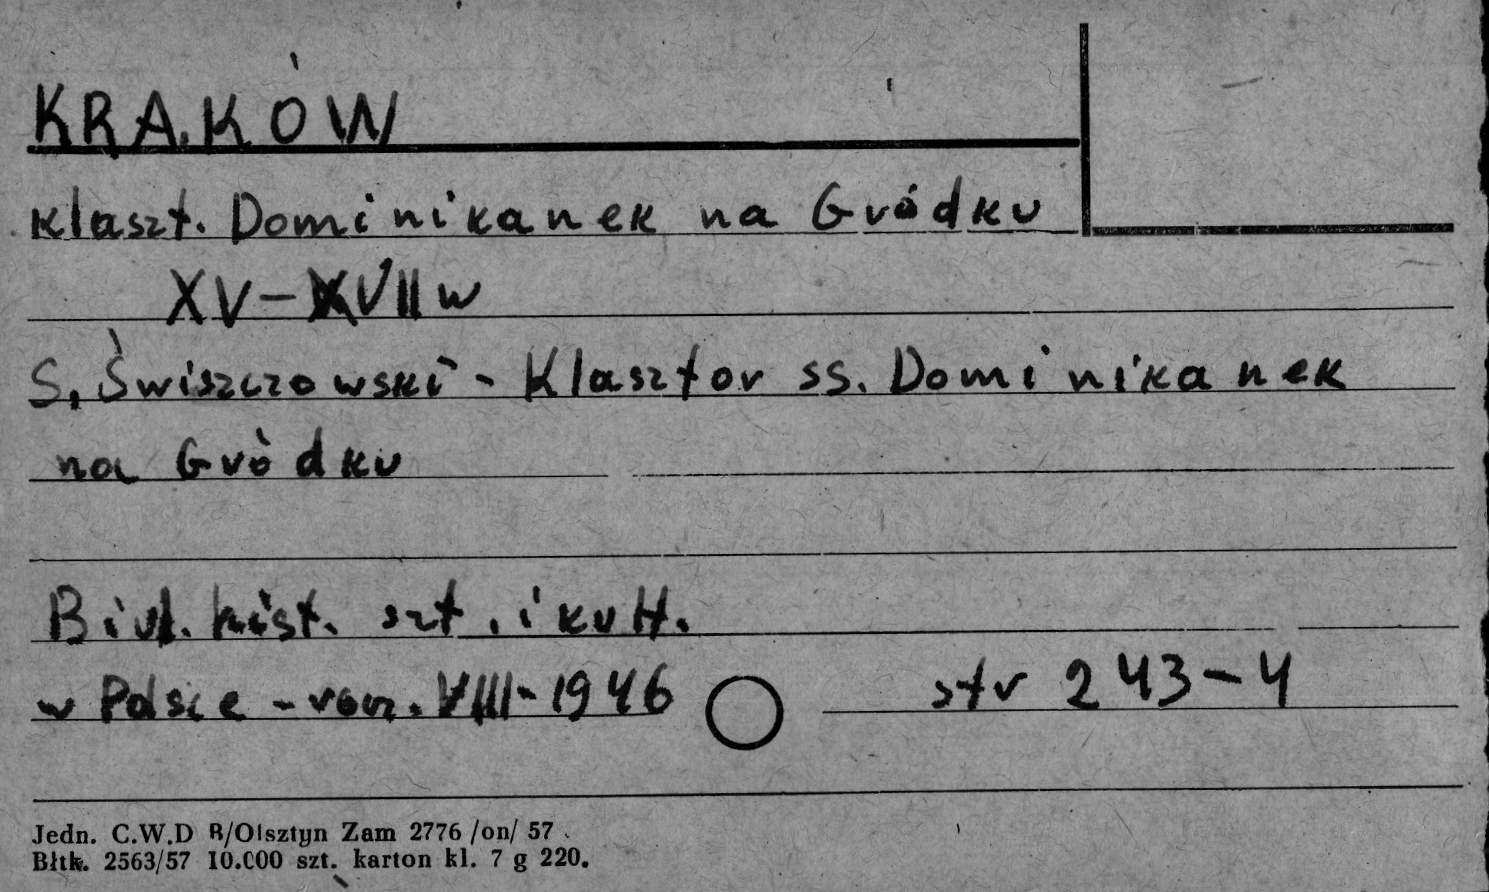 KRAKÓW
Klaszt. Dominikanek na Gródku
XV-XVII w
S. Świszczowski - Klasztor ss. Dominikanek
na Gródku
Biul. hist. szt. i kult.
w Polsce - rocz. VIII - 1946 str 243-4
Jedn. C.W.D B/Olsztyn Zam 2776 /on/ 57
Błtk. 2563/57 10.000 szt. karton kl. 7 g 220.